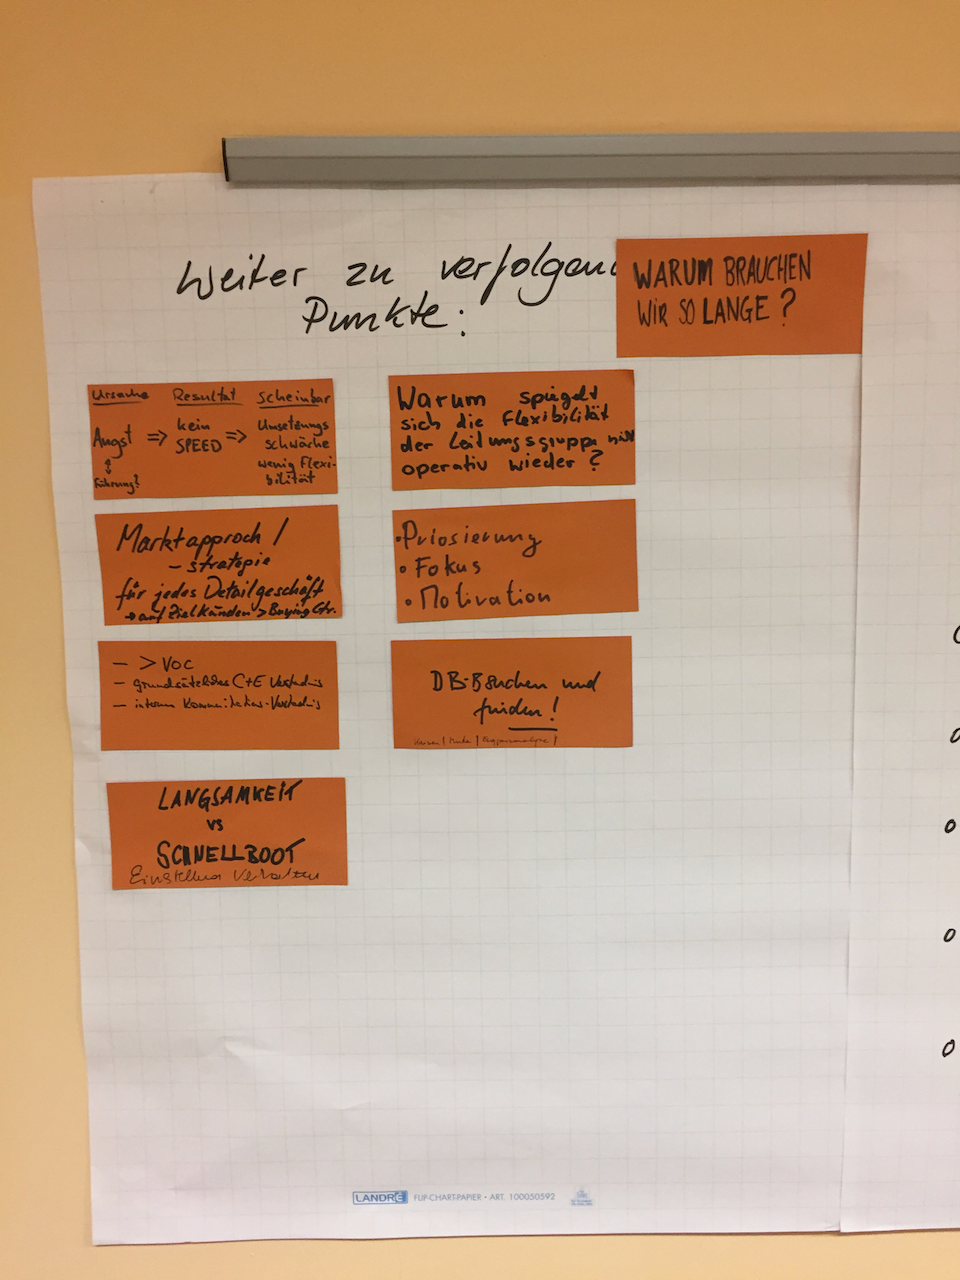 Weiter zu verfolgend
Punkte:
WARUM BRAUCHEN
WIR SO LANGE ?
Ursache Resultat scheinbar
Angst => kein SPEED => Umsetzungs
schwäche
wenig Flexi-
bilität
Führung?
Warum spiegelt
sich die Flexibilität
der Leitungsgruppe nicht
operativ wieder ?
Marktapproch /
- strategie
für jedes Detailgeschäft
→ auf Zielkunden > Buying Ctr.
• Priosierung
• Fokus
• Motivation
- > VOC
- grundsätzliches C+E Verständnis
- internes Kommunikations-Verständnis
DB-Bsuchen und
finden !
LANGSAMKEIT
vs
SCHNELLBOOT
Einstellung Verhalten
LANDRÉ FLIP-CHART-PAPIER • ART. 100050592